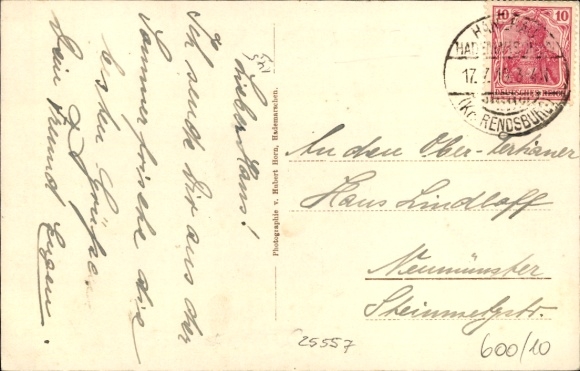 Lieber Hans!
Ich sende Dir aus der
Sommerfrische die
besten Grüße.
Dein Freund Eugen.
Photographie v. Hubert Horn, Hademarschen.
10 10
DEUTSCHES REICH
17.7.
(Kr. RENDSBURG)
An den Ober-Tertianer
Hans Lindloff
Neumünster
Steinmetzstr.
25557
600/10